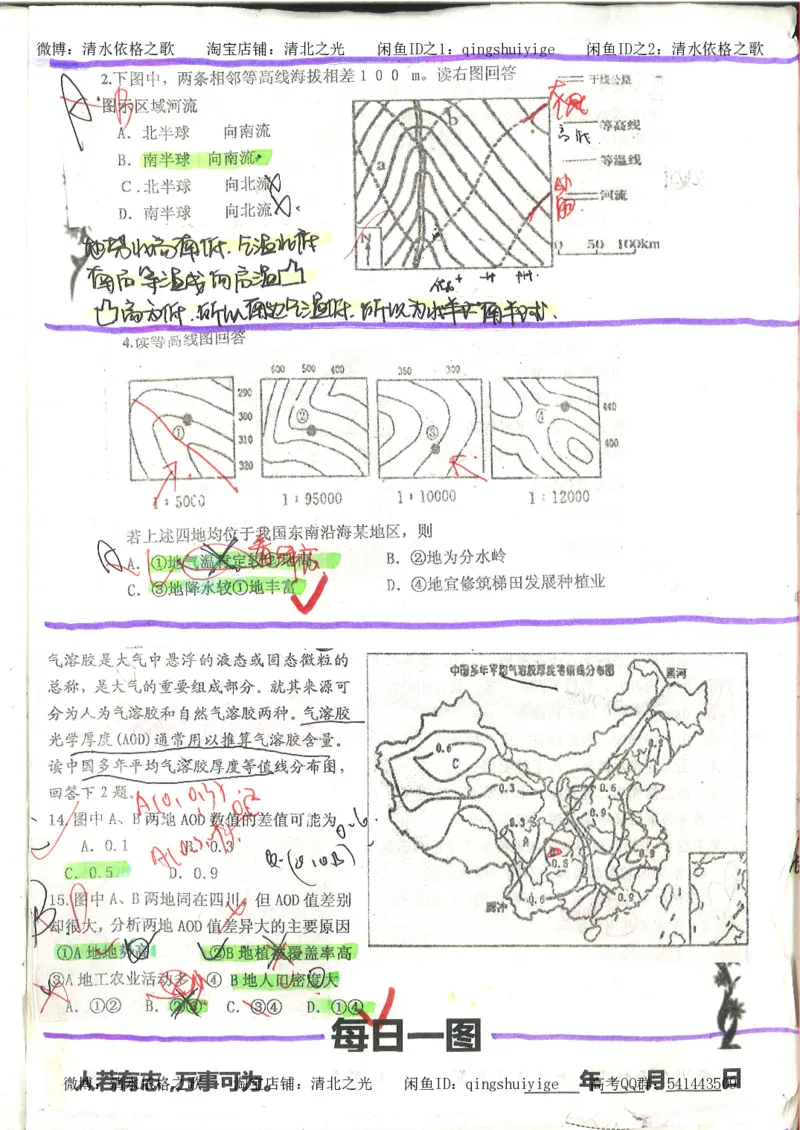 微博：清水依格之歌 淘宝店铺：清北之光 闲鱼ID之1：qingshuiyige 闲鱼ID之2：清水依格之歌
2.下图中，两条相邻等高线海拔相差100 m。读右图回答
图示区域河流
A．北半球 向南流
B．南半球 向南流
C．北半球 向北流
D．南半球 向北流
干线公路
等高线
等温线
河流
a
b
N
0 50 100km
地势北高南低．气温北低
南高 等温线向高温凸
凸高为低．所以 气温低．所以为 南半球．
4.读等高线图回答
① 290 300 310 320
600 500 400 ②
350 300 ③
④ 440 400
1：5000 1：95000 1：10000 1：12000
若上述四地均位于我国东南沿海某地区，则
A．①地气温 B．②地为分水岭
C．③地降水较①地丰富 D．④地宜修筑梯田发展种植业
气溶胶是大气中悬浮的液态或固态微粒的
总称，是大气的重要组成部分。就其来源可
分为人为气溶胶和自然气溶胶两种。气溶胶
光学厚度(AOD)通常用以推算气溶胶含量。
读中国多年平均气溶胶厚度等值线分布图，
回答下2题。
14.图中A、B两地AOD数值的差值可能为
A．0.1 B．0.3
C．0.5 D．0.9
15.图中A、B两地同在四川，但AOD值差别
却很大，分析两地AOD值差异大的主要原因
①A地地势高 ②B地植被覆盖率高
③A地工农业活动多 ④ B地人口密度大
A．①② B．②③ C．③④ D．①④
中国多年平均气溶胶厚度等值线分布图
黑河
腾冲
0.6
C
0.3
0.3
A
0.6
0.9
0.6
0.9
每日一图
人若有志，万事可为。 年 月 日
微博：清水依格之歌 淘宝店铺：清北之光 闲鱼ID：qingshuiyige 高考QQ群：541443509